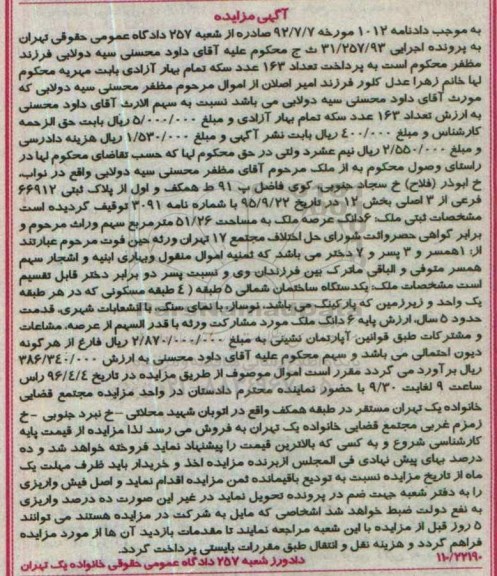 آگهی مزایده
به موجب دادنامه ۱۰۱۲ مورخه ۹۲/۷/۷ صادره از شعبه ۲۵۷ دادگاه عمومی حقوقی تهران
به پرونده اجرایی ۳۱/۲۵۷/۹۳ ث ج محکوم علیه آقای داود محسنی سیه دولابی فرزند
مظفر محکوم است به پرداخت تعداد ۱۶۳ عدد سکه تمام بهار آزادی بابت مهریه محکوم
لها خانم زهرا عدل کلور فرزند امیر اصلان از اموال مرحوم مظفر محسنی سیه دولابی که
مورث آقای داود محسنی سیه دولابی می باشد نسبت به سهم الارث آقای داود محسنی
به ارزش تعداد ۱۶۳ عدد سکه تمام بهار آزادی و مبلغ ۵/۰۰۰/۰۰۰ ریال بابت حق الزحمه
کارشناس و مبلغ ۴۰۰/۰۰۰ ریال بابت نشر آگهی و مبلغ ۱/۵۳۰/۰۰۰ ریال هزینه دادرسی
و مبلغ ۲/۵۵۰/۰۰۰ ریال نیم عشر دولتی در حق محکوم لها که حسب تقاضای محکوم لها در
راستای وصول محکوم به از ملک مرحوم آقای مظفر محسنی سیه دولابی واقع در نواب،
خ ابوذر (فلاح) خ سجاد جنوبی، کوی فاضل پ ۹۱ ط همکف و اول از پلاک ثبتی ۶۶۹۱۲
فرعی از ۳ اصلی بخش ۱۲ در تاریخ ۹۵/۹/۲۲ با شماره نامه ۳۰۹۱ توقیف گردیده است
مشخصات ثبتی ملک: ۶دانگ عرصه ملک به مساحت ۵۱/۲۶ مترمربع سهم وراث مرحوم و
برابر گواهی حصروراثت شورای حل اختلاف مجتمع ۱۷ تهران ورثه حین فوت مرحوم عبارتند
از: ۱همسر و ۳ پسر و ۷ دختر می باشد که ثمنیه اموال منقول وبهای ابنیه و اشجار سهم
همسر متوفی و الباقی ماترک بین فرزندان وی و نسبت پسر دو برابر دختر قابل تقسیم
است مشخصات ملک: یکدستگاه ساختمان شمالی ۵ طبقه (۴ طبقه مسکونی که در هر طبقه
یک واحد و زیرزمین که پارکینگ می باشد، نوساز، با نمای سنگ، با انشعابات شهری، قدمت
حدود ۵ سال، ارزش پایه ۶ دانگ ملک مورد مشارکت ورثه با قدر السهم از عرصه، مشاعات
و مشترکات طبق قوانین آپارتمان نشینی به مبلغ ۲/۸۷۰/۰۰۰/۰۰۰ ریال فارغ از هرگونه
دیون احتمالی می باشد و سهم محکوم علیه آقای داود محسنی به ارزش ۳۸۶/۳۴۰/۰۰۰
ریال برآورد می گردد مقرر است اموال موصوف از طریق مزایده در تاریخ ۹۶/۴/۴ راس
ساعت ۹ لغایت ۹/۳۰ با حضور نماینده محترم دادستان در واحد مزایده مجتمع قضایی
خانواده یک تهران مستقر در طبقه همکف واقع در اتوبان شهید محلاتی -خ نبرد جنوبی -خ
زمزم غربی مجتمع قضایی خانواده یک تهران به فروش می رسد لذا مزایده از قیمت پایه
کارشناسی شروع و به کسی که بالاترین قیمت را پیشنهاد نماید فروخته خواهد شد و ده
درصد بهای پیش نهادی فی المجلس ازبرنده مزایده اخذ و خریدار باید ظرف مهلت یک
ماه از تاریخ مزایده نسبت به تودیع باقیمانده ثمن مزایده اقدام نماید و اصل فیش واریزی
را به دفتر شعبه جهت ضم در پرونده تحویل نماید در غیر این صورت ده درصد واریزی
به نفع دولت ضبط خواهد شد اشخاصی که مایل به شرکت در مزایده هستند می توانند
۵ روز قبل از مزایده با این شعبه مراجعه نمایند تا مقدمات بازدید آن ها از مورد مزایده
فراهم گردد و هزینه نقل و انتقال طبق مقررات بایستی پرداخت گردد.
۱۱۰/۲۲۱۹۰ دادورز شعبه ۲۵۷ دادگاه عمومی حقوقی خانواده یک تهران